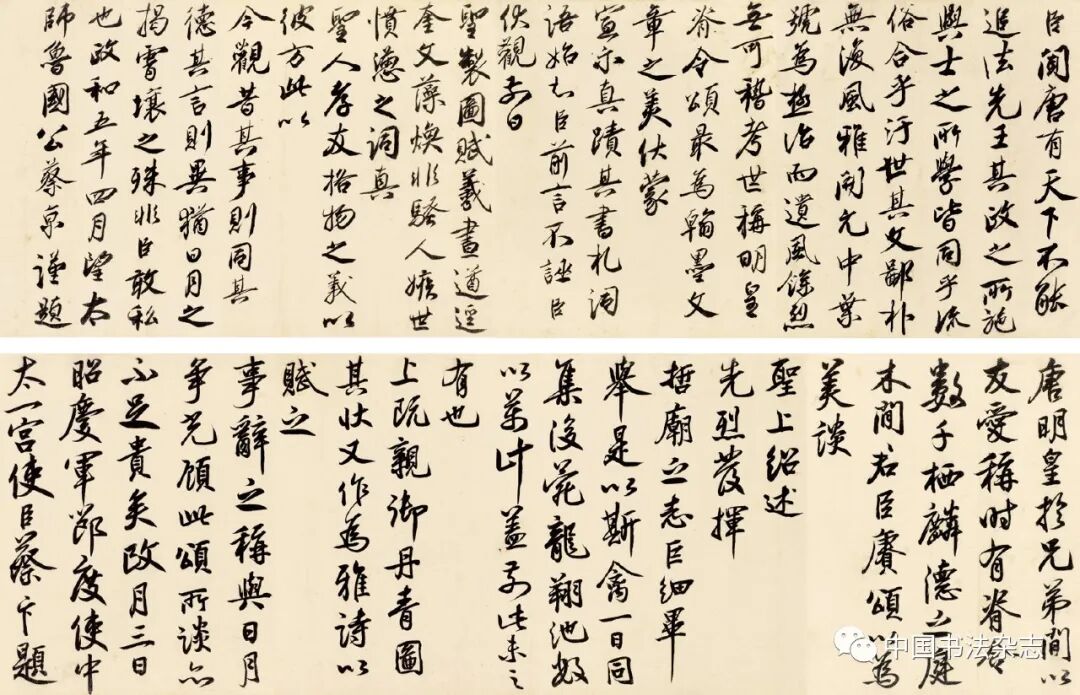 臣聞唐有天下不能
追法先王其政之所施
與士之所學皆同乎流
俗合乎汙世其文鄙朴
無復風雅開元中葉
號為極治而遺風餘烈
無可稽考世稱明皇
脊令頌最為翰墨文
章之美伏蒙
宣示真蹟其書札詞
語始知臣前言不誣臣
伏觀前日
聖製圖賦羲畫遒逕
奎文藻煥非騷人嫉世
憤懣之詞真
聖人孝友格物之義以
彼方此以
今觀昔其事則同其
德其言則異猶日月之
揭霄壤之殊非臣敢私
也政和五年四月望太
師魯國公蔡京謹題
唐明皇於兄弟間以
友愛稱時有脊令
數千栖麟德之庭
木間君臣賡頌以為
美談
聖上紹述
先烈發揮
哲廟之志巨細畢
舉是以斯禽一日同
集後苑龍翔池數
以萬計蓋前此未之
有也
上既親御丹青圖
其狀又作為雅詩以
賦之
事辭之稱與日月
爭光顧此頌所談亦
不足貴矣政月三日
昭慶軍節度使中
太一宮使臣蔡卞題
中国书法杂志